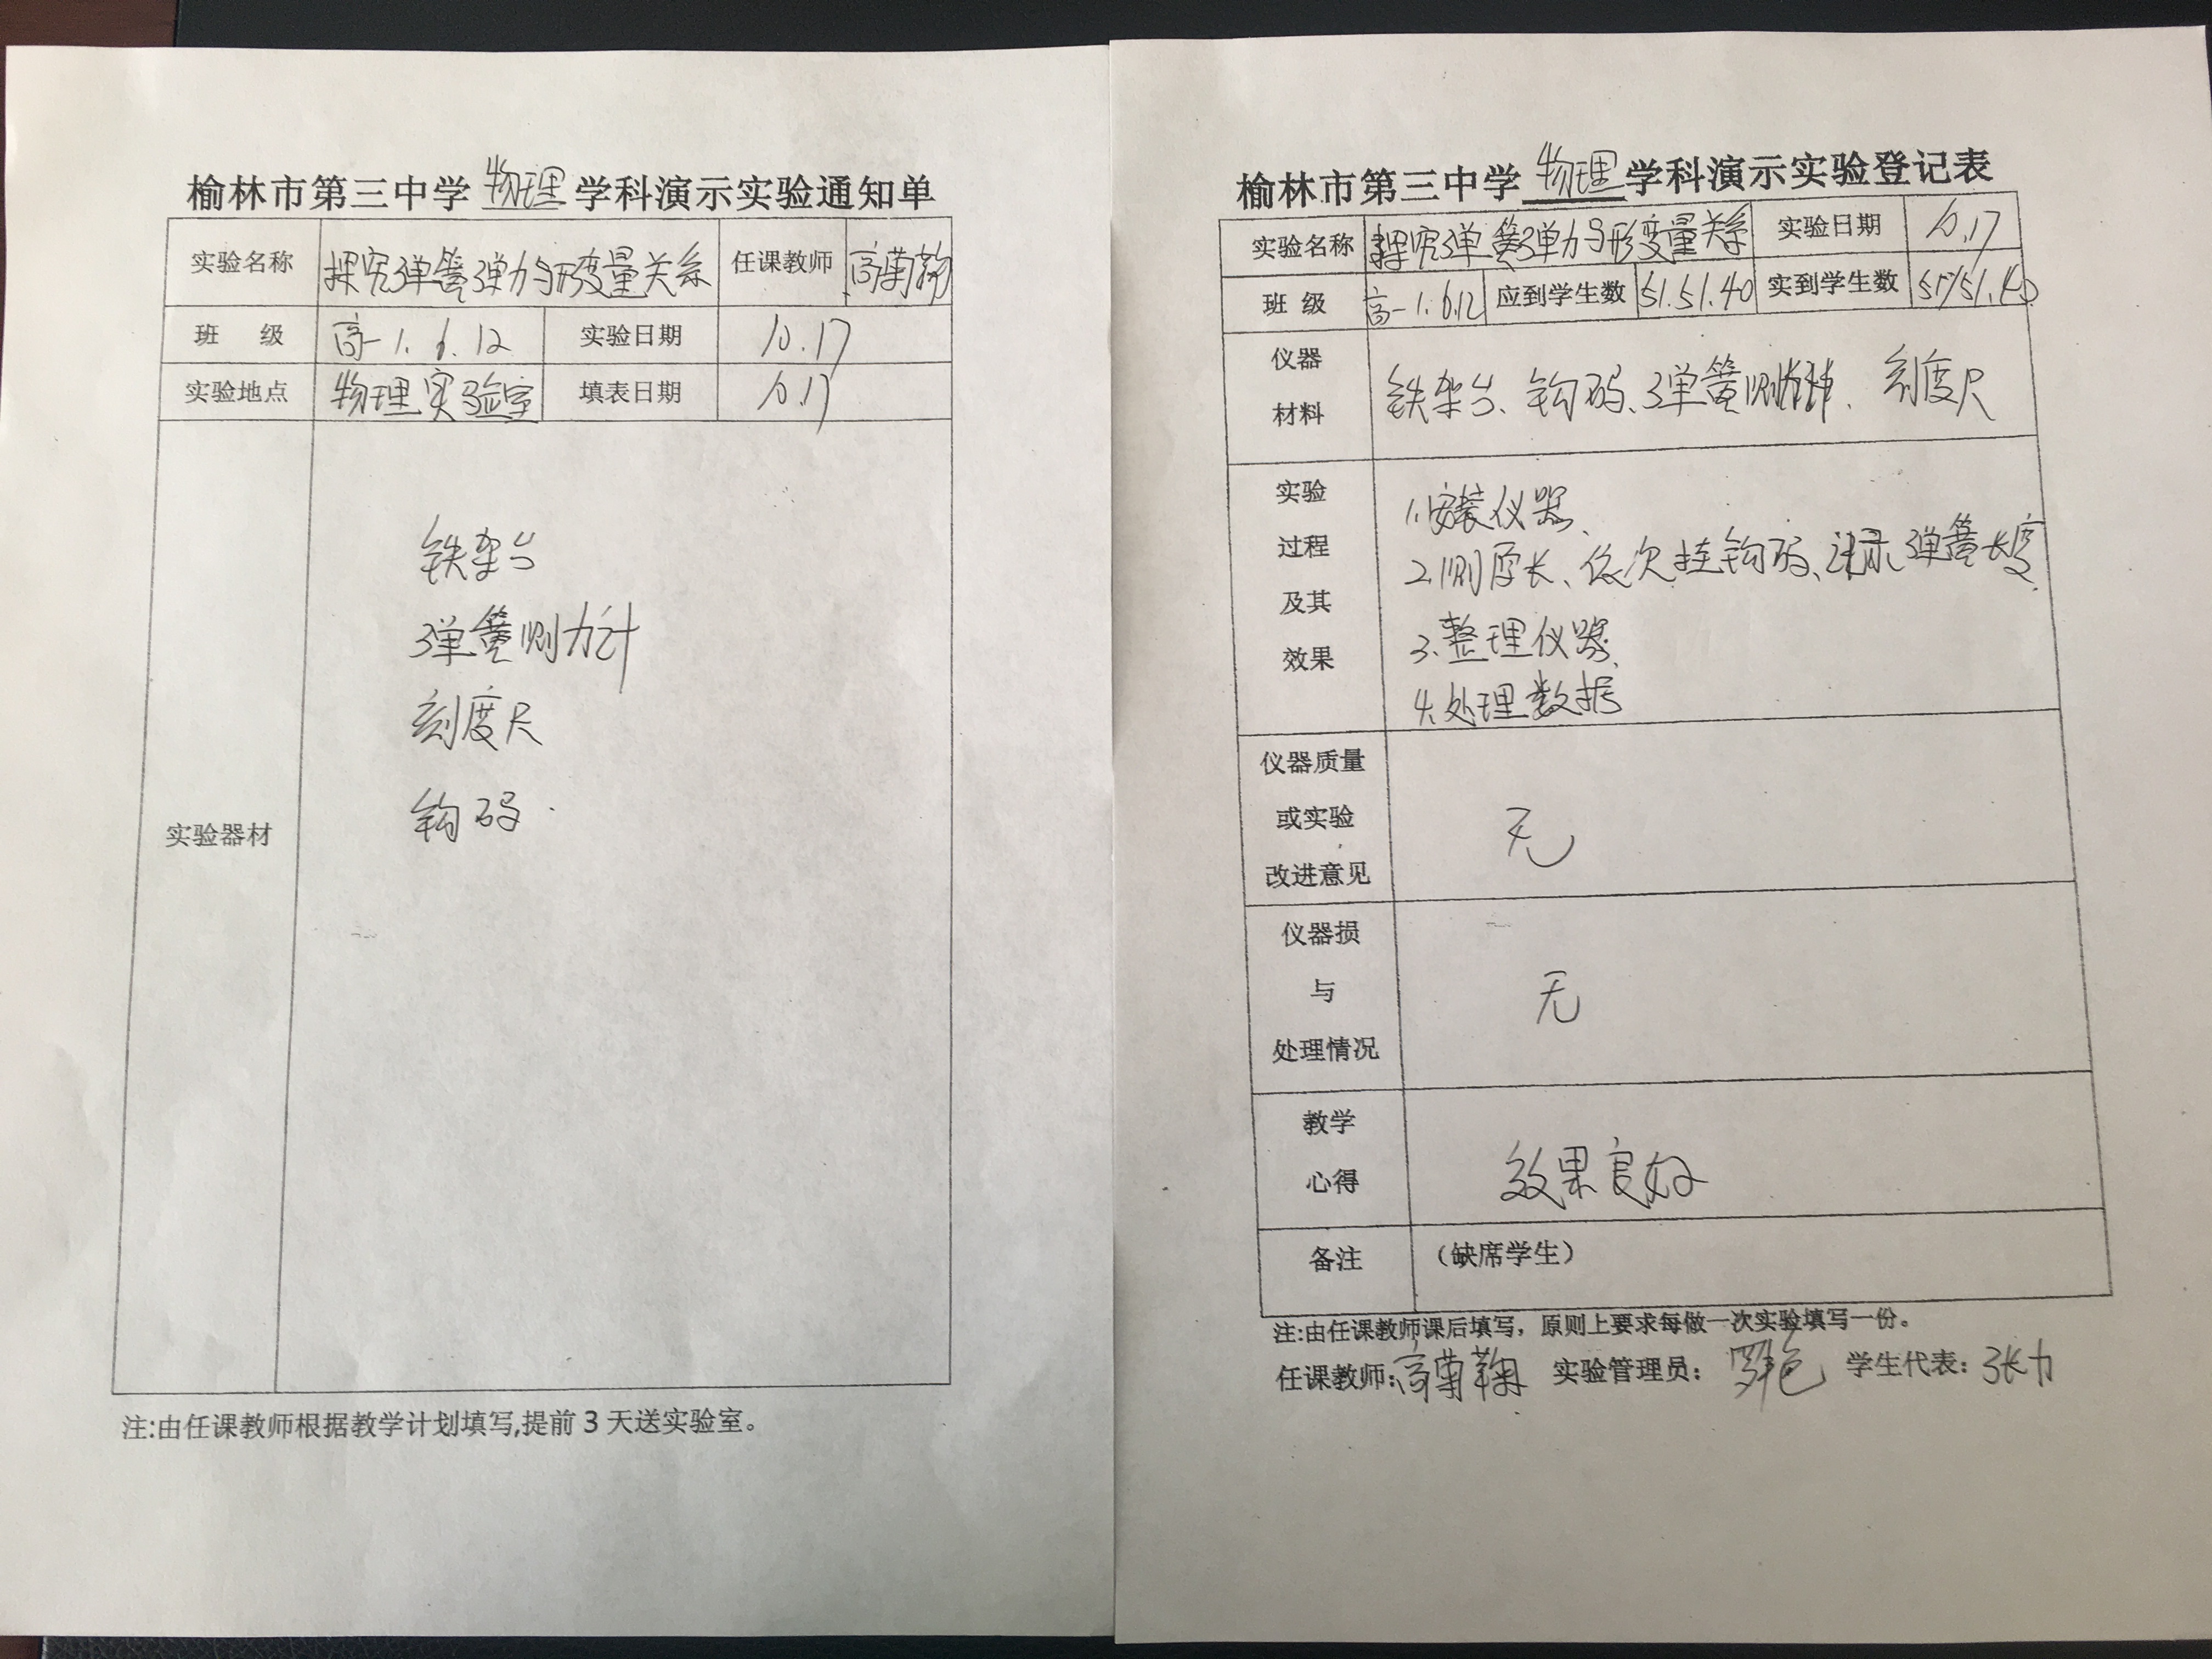 榆林市第三中学 物理 学科演示实验通知单
实验名称 探究弹簧弹力与形变量关系 任课教师 高菊鞠
班 级 高一1.6.12 实验日期 10.17
实验地点 物理实验室 填表日期 10.17
实验器材
铁架台
弹簧测力计
刻度尺
钩码
注:由任课教师根据教学计划填写,提前3天送实验室。
榆林市第三中学 物理 学科演示实验登记表
实验名称 探究弹簧弹力与形变量关系 实验日期 10.17
班 级 高一1.6.12 应到学生数 51.51.40 实到学生数 51.51.40
仪器
材料
铁架台、钩码、弹簧测力计、刻度尺
实验
过程
及其
效果
1.安装仪器、
2.测原长、依次挂钩码、记录弹簧长度
3.整理仪器
4.处理数据
仪器质量
或实验
改进意见
无
仪器损
与
处理情况
无
教学
心得
效果良好
备注 (缺席学生)
注:由任课教师课后填写，原则上要求每做一次实验填写一份。
任课教师:高菊鞠 实验管理员: 学生代表:张力